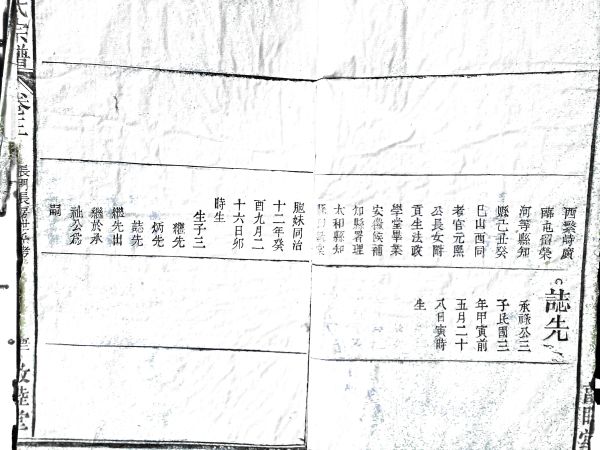 酉繫時廩
河等縣知
縣己丑癸
巳山西同
者官元熙
公長女附
貢生法政
學堂畢業
安徽候補
知縣署理
太和縣知
胞妹同治
十二年癸
酉九月二
十六日卯
時生
生子三
繼先
炳先
誌先
繼先出
繼於承
祉公為
嗣
誌先
承祿公三
子民國三
年甲寅前
五月二十
八日寅時
生
氏宗譜
卷三
敦睦堂